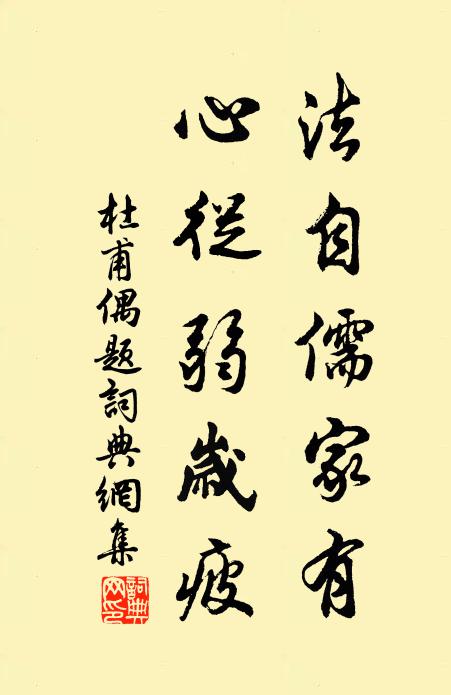 法自儒家有
心從弱歲疲
杜甫偶題詞典網集